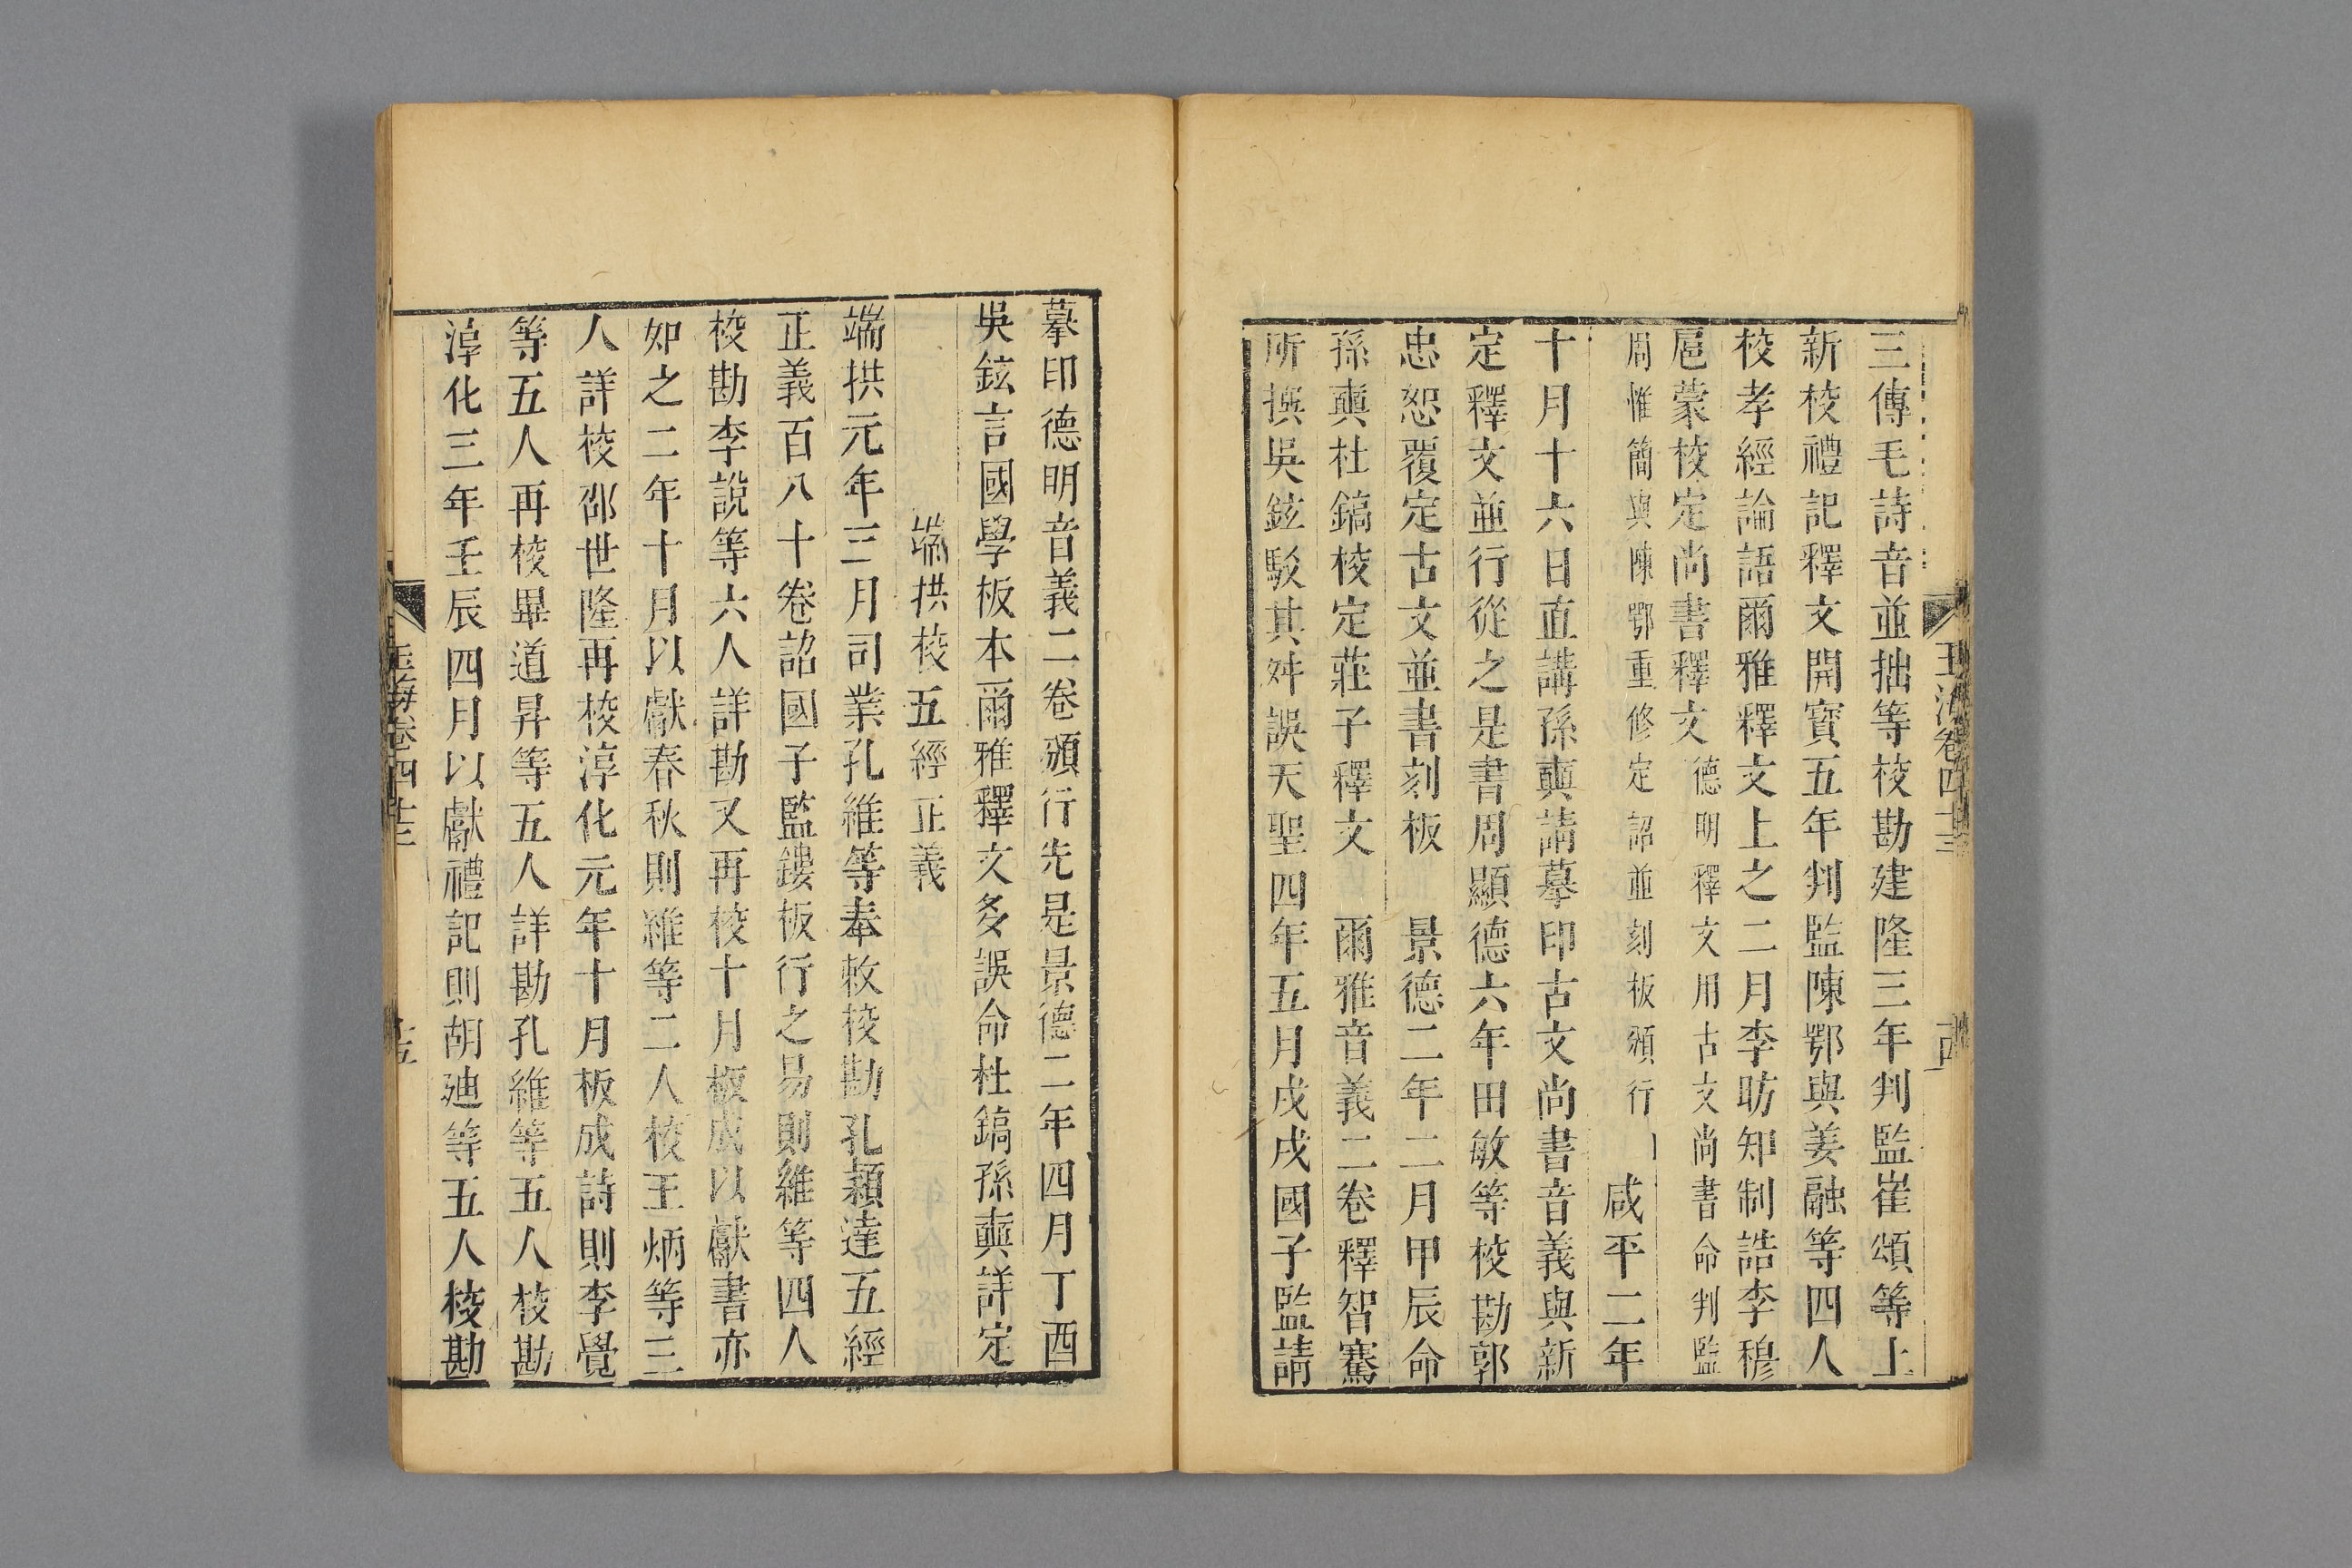 三傳毛詩音並拙等校勘建隆三年判監崔頌等上
新校禮記釋文開寳五年判監陳鄂與姜融等四人
校孝經論語爾雅釋文上之二月李昉知制誥李穆
扈蒙校定尚書釋文德明釋文用古文尚書命判監
周惟簡與陳鄂重修定詔並刻板頒行
咸平二年
十月十六日直講孫奭請摹印古文尚書音義與新
定釋文並行從之是書周顯德六年田敏等校勘郭
忠恕覆定古文並書刻板 景德二年二月甲辰命
孫奭杜鎬校定莊子釋文 爾雅音義二卷釋智騫
所撰吳鉉駁其舛誤天聖四年五月戌戌國子監請
摹印德明音義二卷頒行先是景德二年四月丁酉
吳鉉言國學板本爾雅釋文多誤命杜鎬孫奭詳定
端拱校五經正義
端拱元年三月司業孔維等奉敕校勘孔穎達五經
正義百八十卷詔國子監鏤板行之易則維等四人
校勘李說等六人詳勘又再校十月板成以獻書亦
如之二年十月以獻春秋則維等二人校王炳等三
人詳校邵世隆再校淳化元年十月板成詩則李覺
等五人再校畢道昇等五人詳勘孔維等五人校勘
淳化三年壬辰四月以獻禮記則胡迪等五人校勘
玉海卷四十三
十五